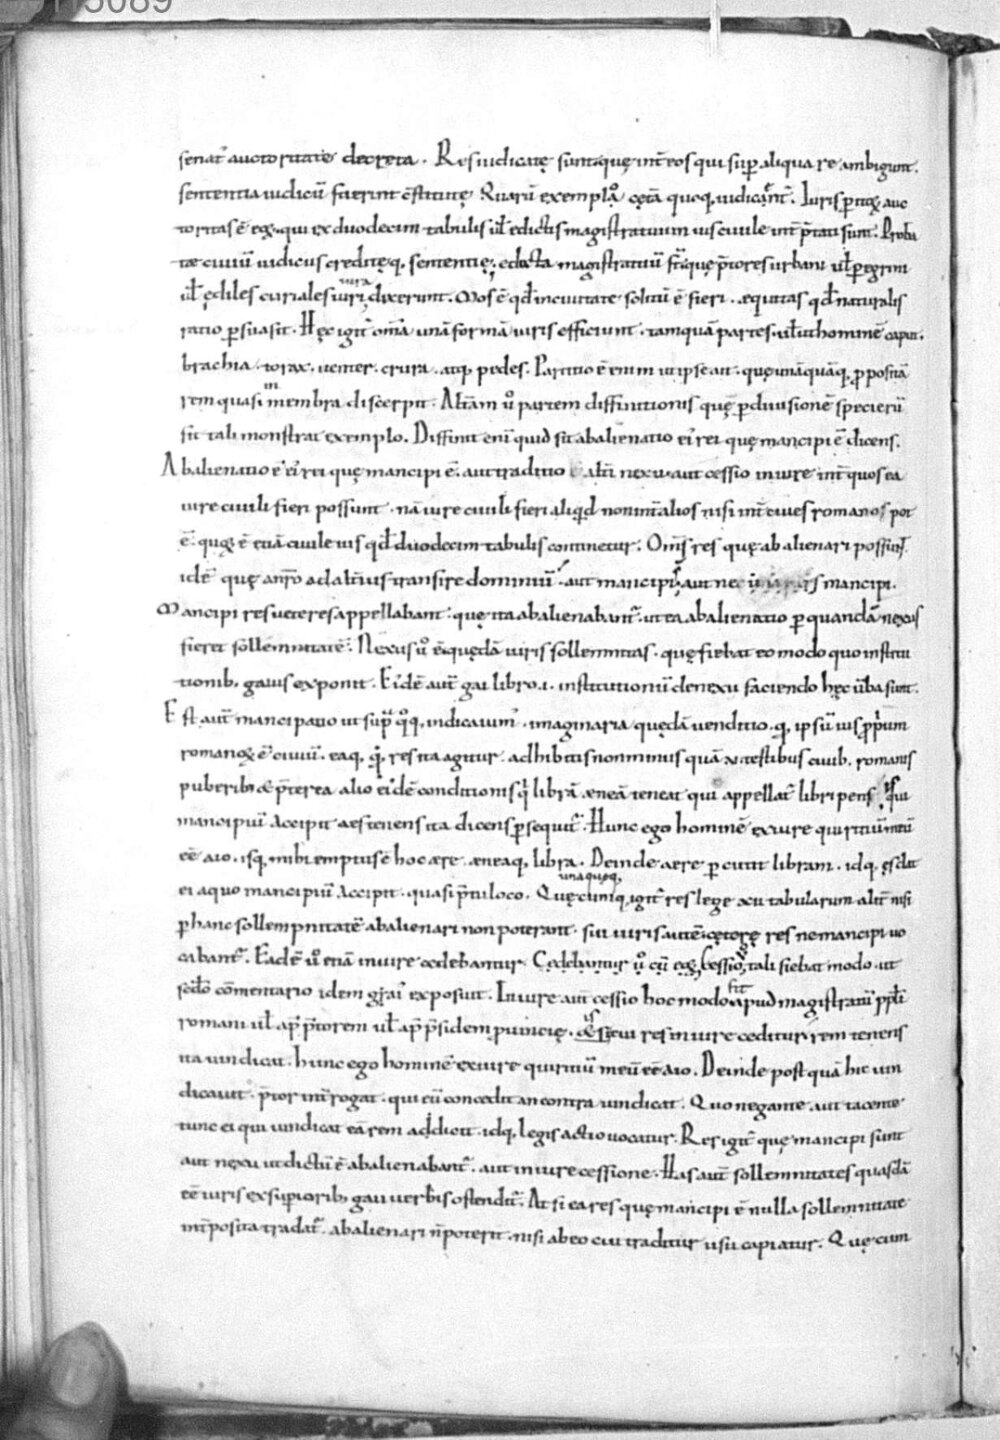 5089
senat᷒ auctoritate decreta. Res iudicatę sunt quę int̄ eos qui sup̱ aliqua re ambigunt.
sententia iudicū fuerint c̄stitutę Quarū exempla cęta quoq; iudicant̄. Iurisp̱itoꝝ auc
toritas ē eoꝝ qui ex duodecim tabulis ul̄ edictis magistratuum ius ciuile int̄p̄tati sunt. Proba
tae ciuiū iudicus creditęq; sententię; edicta magistratuū q̄ p̄tores urbani ul̄ p̱egrini
ul̄ ędiles curiales iura dixerunt. Mos ē qd̄ in ciuitate solitū ē fieri. aequitas qd̄ naturalis
ratio p̱suasit. Hęc igit̄ om̄a unā formā iuris efficiunt. tamquā partes. ul̄ut hominē caput.
brachia. torax. uenter. crura. atq; pedes. Partitio ē enim ut ipse ait. quę unāquāq; propositā
rem quasi in membra discerpit. Altām ů partem diffinitionis quę p̱ diuisionē specierū
fit tali monstrat exemplo. Diffinit eni᷒ quid sit abalienatio ei᷒ rei quę mancipi ē dicens.
Abalienatio ē ei᷒ rei quę mancipi ē. aut traditio alt̄i nexu aut cessio in iure int̄ quos ea
iure ciuili fieri possunt. nā iure ciuili fieri aliqd̄ non int̄ alios nisi int̄ ciues romanos pot
ē. quoꝝ ē etiā ciuile ius qd̄ duodecim tabulis continetur. Om̄s res quę ab alienari possunt.
idē quę anr̄o ad alt̄ius transire dominiū aut mancipi s̄ aut nec mancipi.
Mancipi res ueteres appellabant. quę ita abalienabant̄. ut ea abalienatio p̱ quandā nexus
fieret sollemnitatē. Nexus ů ē quędā iuris sollemnitas. quę fiebat eo modo quo institu
tionib; gaius exponit. Ei᷒dē aut̄ gai libro .i. institutionū de nexu faciendo hęc uerba sunt.
Est aut̄ mancipatio ut sup̄ qq; indicauim᷒. imaginaria quędā uenditio. q; ipsū ius propriū
romanoꝝ ē ciuiū. eaq; res ita agitur. adhibitis non minus quā .v. testibus ciuib; romanis
puberib; & p̄terea alio ei᷒dē conditionis q libra aeneā teneat qui appellat̄ libripens qui
mancipiū accipit aes tenens ita dicens p̱sequit̄. Hunc ego hominē ex iure quiritiū meū
eē aio. isq; mihi emptus ē hoc aere. aeneaq; libra. Deinde aere p̱cutit libram. idq; ęs dat
ei a quo mancipiū accipit. quasi p̄tii loco. Quęcumq; unaquęq; igit̄ res lege .xii. tabularum alit̄ nisi
p̱ hanc sollempnitatē abalienari non poterant. sui iuris autē cęterę res nec mancipi uo
cabant̄. Eadē ů etiā in iure cedebantur. Cedebantur ů cū eoꝝ cessio tali fiebat modo. ut
scd̄o cōmentario idem gai᷒ exposuit. In iure aut̄ cessio hoc modo fit apud magistratū pp̄li
romani ul̄ ap̄ p̄torem ul̄ ap̄ p̄sidem puincię. is cui res in iure ceditur rem tenens
ita uindicat. hunc ego hominē ex iure quiritiū meū eē aio. Deinde postquā hic uin
dicauit. p̄tor int̄rogat. qui eū concedit an contra uindicat. Quo negante aut tacente
tunc ei qui uindicat eā rem addicit. idq; legis actio uocatur. Res igit̄ quę mancipi sunt
aut nexu ut dictū ē abalienabant̄. aut in iure cessione. Has aut̄ sollemnitates quasdā
eē iuris ex sup̱iorib; gaii uerbis ostendit̄. At si ea res quę mancipi ē nulla sollemnitate
int̄posita tradat̄. abalienari n̄ poterit. nisi ab eo cui traditur usu capiatur. Quę cum